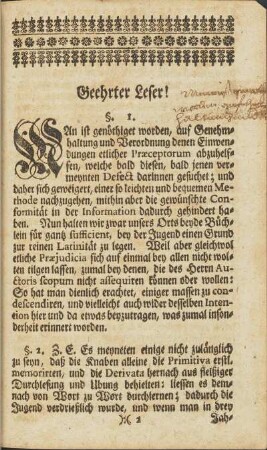 Geehrter Leser!
§. 1.
MAn ist genöthiget worden, auf Genehm-
haltung und Verordnung denen Einwen-
dungen etlicher Præceptorum abzuhelf-
fen, welche bald diesen, bald jenen ver-
meynten Defect darinnen gesuchet; und
daher sich geweigert, einer so leichten und bequemen Me-
thode nachzugehen, mithin aber die gewünschte Con-
formität in der Information dadurch gehindert ha-
ben. Nun halten wir zwar unsers Orts beyde Büch-
lein für gantz sufficient, bey der Jugend einen Grund
zur reinen Latinität zu legen. Weil aber gleichwol
etliche Præjudicia sich auf einmal bey allen nicht wol-
ten tilgen lassen, zumal bey denen, die des Herrn Au-
ctoris scopum nicht assequiren können oder wollen:
So hat man dienlich erachtet, einiger massen zu con-
descendiren, und vielleicht auch wider desselben Inten-
tion hier und da etwas beyzutragen, was zumal inson-
derheit erinnert worden.
§. 2. Z. E. Es meyneten einige nicht zulänglich
zu seyn, daß die Knaben alleine die Primitiva erstl.
memorirten, und die Derivata hernach aus fleißiger
Durchlesung und Ubung behielten: liessen es dem-
nach von Wort zu Wort durchlernen; dadurch die
Jugend verdrießlich wurde, und wenn man in drey
2 Jah-